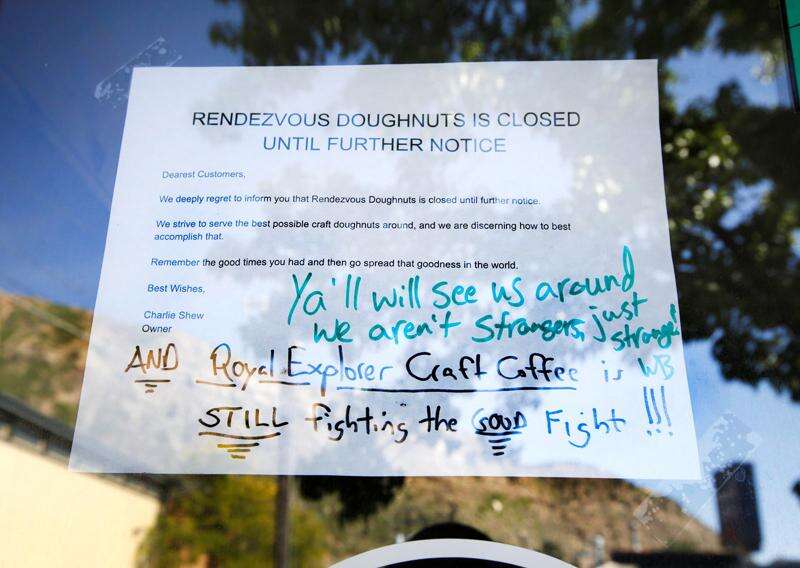 RENDEZVOUS DOUGHNUTS IS CLOSED
UNTIL FURTHER NOTICE
Dearest Customers,
We deeply regret to inform you that Rendezvous Doughnuts is closed until further notice.
We strive to serve the best possible craft doughnuts around, and we are discerning how to best
accomplish that.
Remember the good times you had and then go spread that goodness in the world.
Best Wishes,
Charlie Shew
Owner
Ya'll will see us around
we aren't strangers, just
strange!
WB
AND Royal Explorer Craft Coffee is
STILL fighting the GOOD Fight !!!